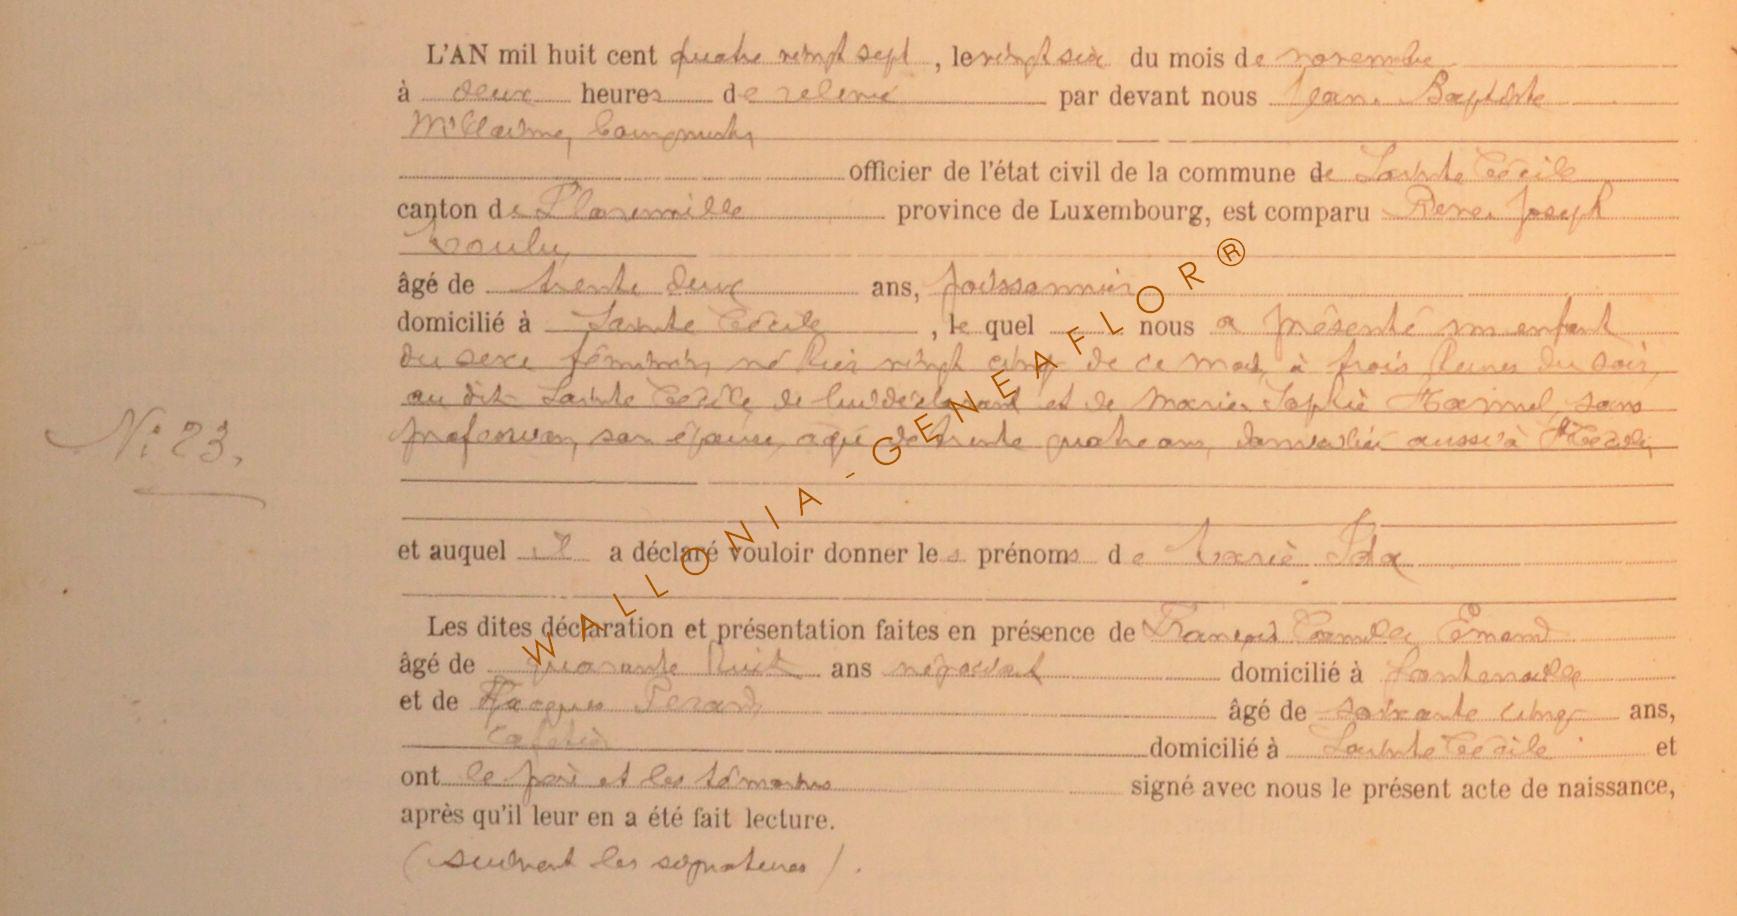 L'AN mil huit cent quatre vingt sept, le vingt six du mois de novembre
à deux heures de relevée par devant nous Jean Baptiste
officier de l'état civil de la commune de Sainte Cécile
canton de Florenville province de Luxembourg, est comparu René Joseph
âgé de trente deux ans, poissonnier
domicilié à Sainte Cécile, le quel nous a présenté un enfant
du sexe féminin, né hier vingt cinq de ce mois, à trois heures du soir,
au dit Sainte Cécile de lui déclarant et de Marie Sophie sans
profession, son épouse, agée de trente quatre ans, domiciliée aussi à Ste Cécile,
N: 23.
et auquel il a déclaré vouloir donner les prénoms de Marie Ida
Les dites déclaration et présentation faites en présence de François Camille
âgé de quarante huit ans négociant domicilié à Fontenoille
et de Jacques âgé de soixante cinq ans,
domicilié à Sainte Cécile et
ont le père et les témoins signé avec nous le présent acte de naissance,
après qu'il leur en a été fait lecture.
(suivent les signatures).
WALLONIA-GENEAFLOR®